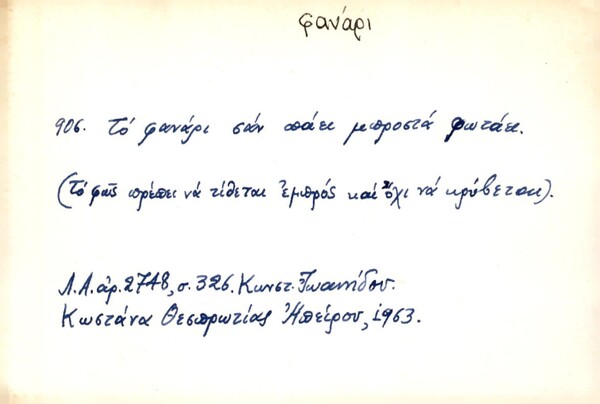 φανάρι
906. Τό φανάρι σάν πάει μπροστά φωτάει.
(Τό φῶς πρέπει νά τίθεται ἐμπρός καί ὄχι νά κρύβεται).
Λ.Α. ἀρ. 2748, σ. 326. Κωνστ. Ἰωαννίδου.
Κωστάνα Θεσπρωτίας Ἠπείρου, 1963.